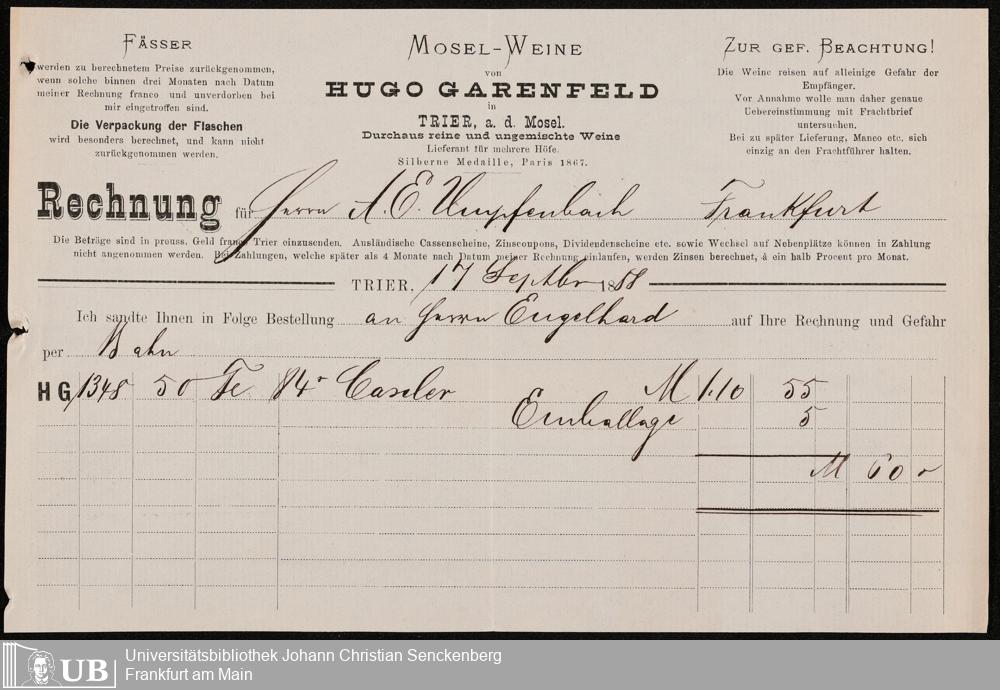 FÄSSER
werden zu berechnetem Preise zurückgenommen,
wenn solche binnen drei Monaten nach Datum
meiner Rechnung franco und unverdorben bei
mir eingetroffen sind.
Die Verpackung der Flaschen
wird besonders berechnet, und kann nicht
zurückgenommen werden.
MOSEL-WEINE
von
HUGO GARENFELD
in
TRIER, a. d. Mosel.
Durchaus reine und ungemischte Weine
Lieferant für mehrere Höfe.
Silberne Medaille, Paris 1867.
ZUR GEF. BEACHTUNG!
Die Weine reisen auf alleinige Gefahr der
Empfänger.
Vor Annahme wolle man daher genaue
Uebereinstimmung mit Frachtbrief
untersuchen.
Bei zu später Lieferung, Manco etc. sich
einzig an den Frachtführer halten.
Rechnung für Herrn A. E. Umpfenbach Frankfurt
Die Beträge sind in preuss. Geld franco Trier einzusenden. Ausländische Cassenscheine, Zinscoupons, Dividendenscheine etc. sowie Wechsel auf Nebenplätze können in Zahlung
nicht angenommen werden. Bei Zahlungen, welche später als 4 Monate nach Datum meiner Rechnung einlaufen, werden Zinsen berechnet, à ein halb Procent pro Monat.
TRIER, 17 Septbr 1888
Ich sandte Ihnen in Folge Bestellung an Herrn Engelhard auf Ihre Rechnung und Gefahr
per Bahn
HG 1348 50 Fl. 84r Caseler M 1.10 55
Emballage 5
M 60 -
UB
Universitätsbibliothek Johann Christian Senckenberg
Frankfurt am Main